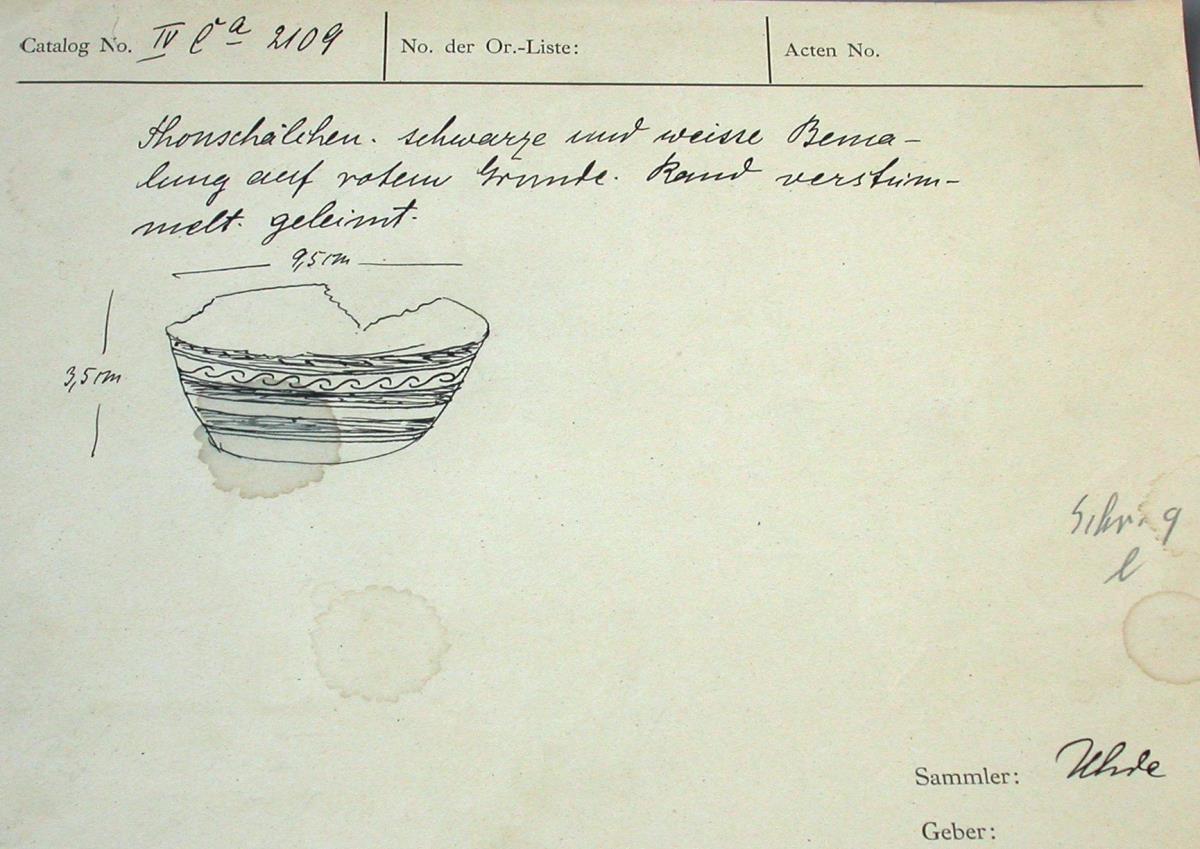 Catalog No. IV Ca 2109 No. der Or.-Liste: Acten No.
Thonschälchen. schwarze und weisse Bema-
lung auf rotem Grunde. Rand verstüm-
melt. geleimt.
9,5 cm
3,5 cm
Sammler: Uhde
Geber: